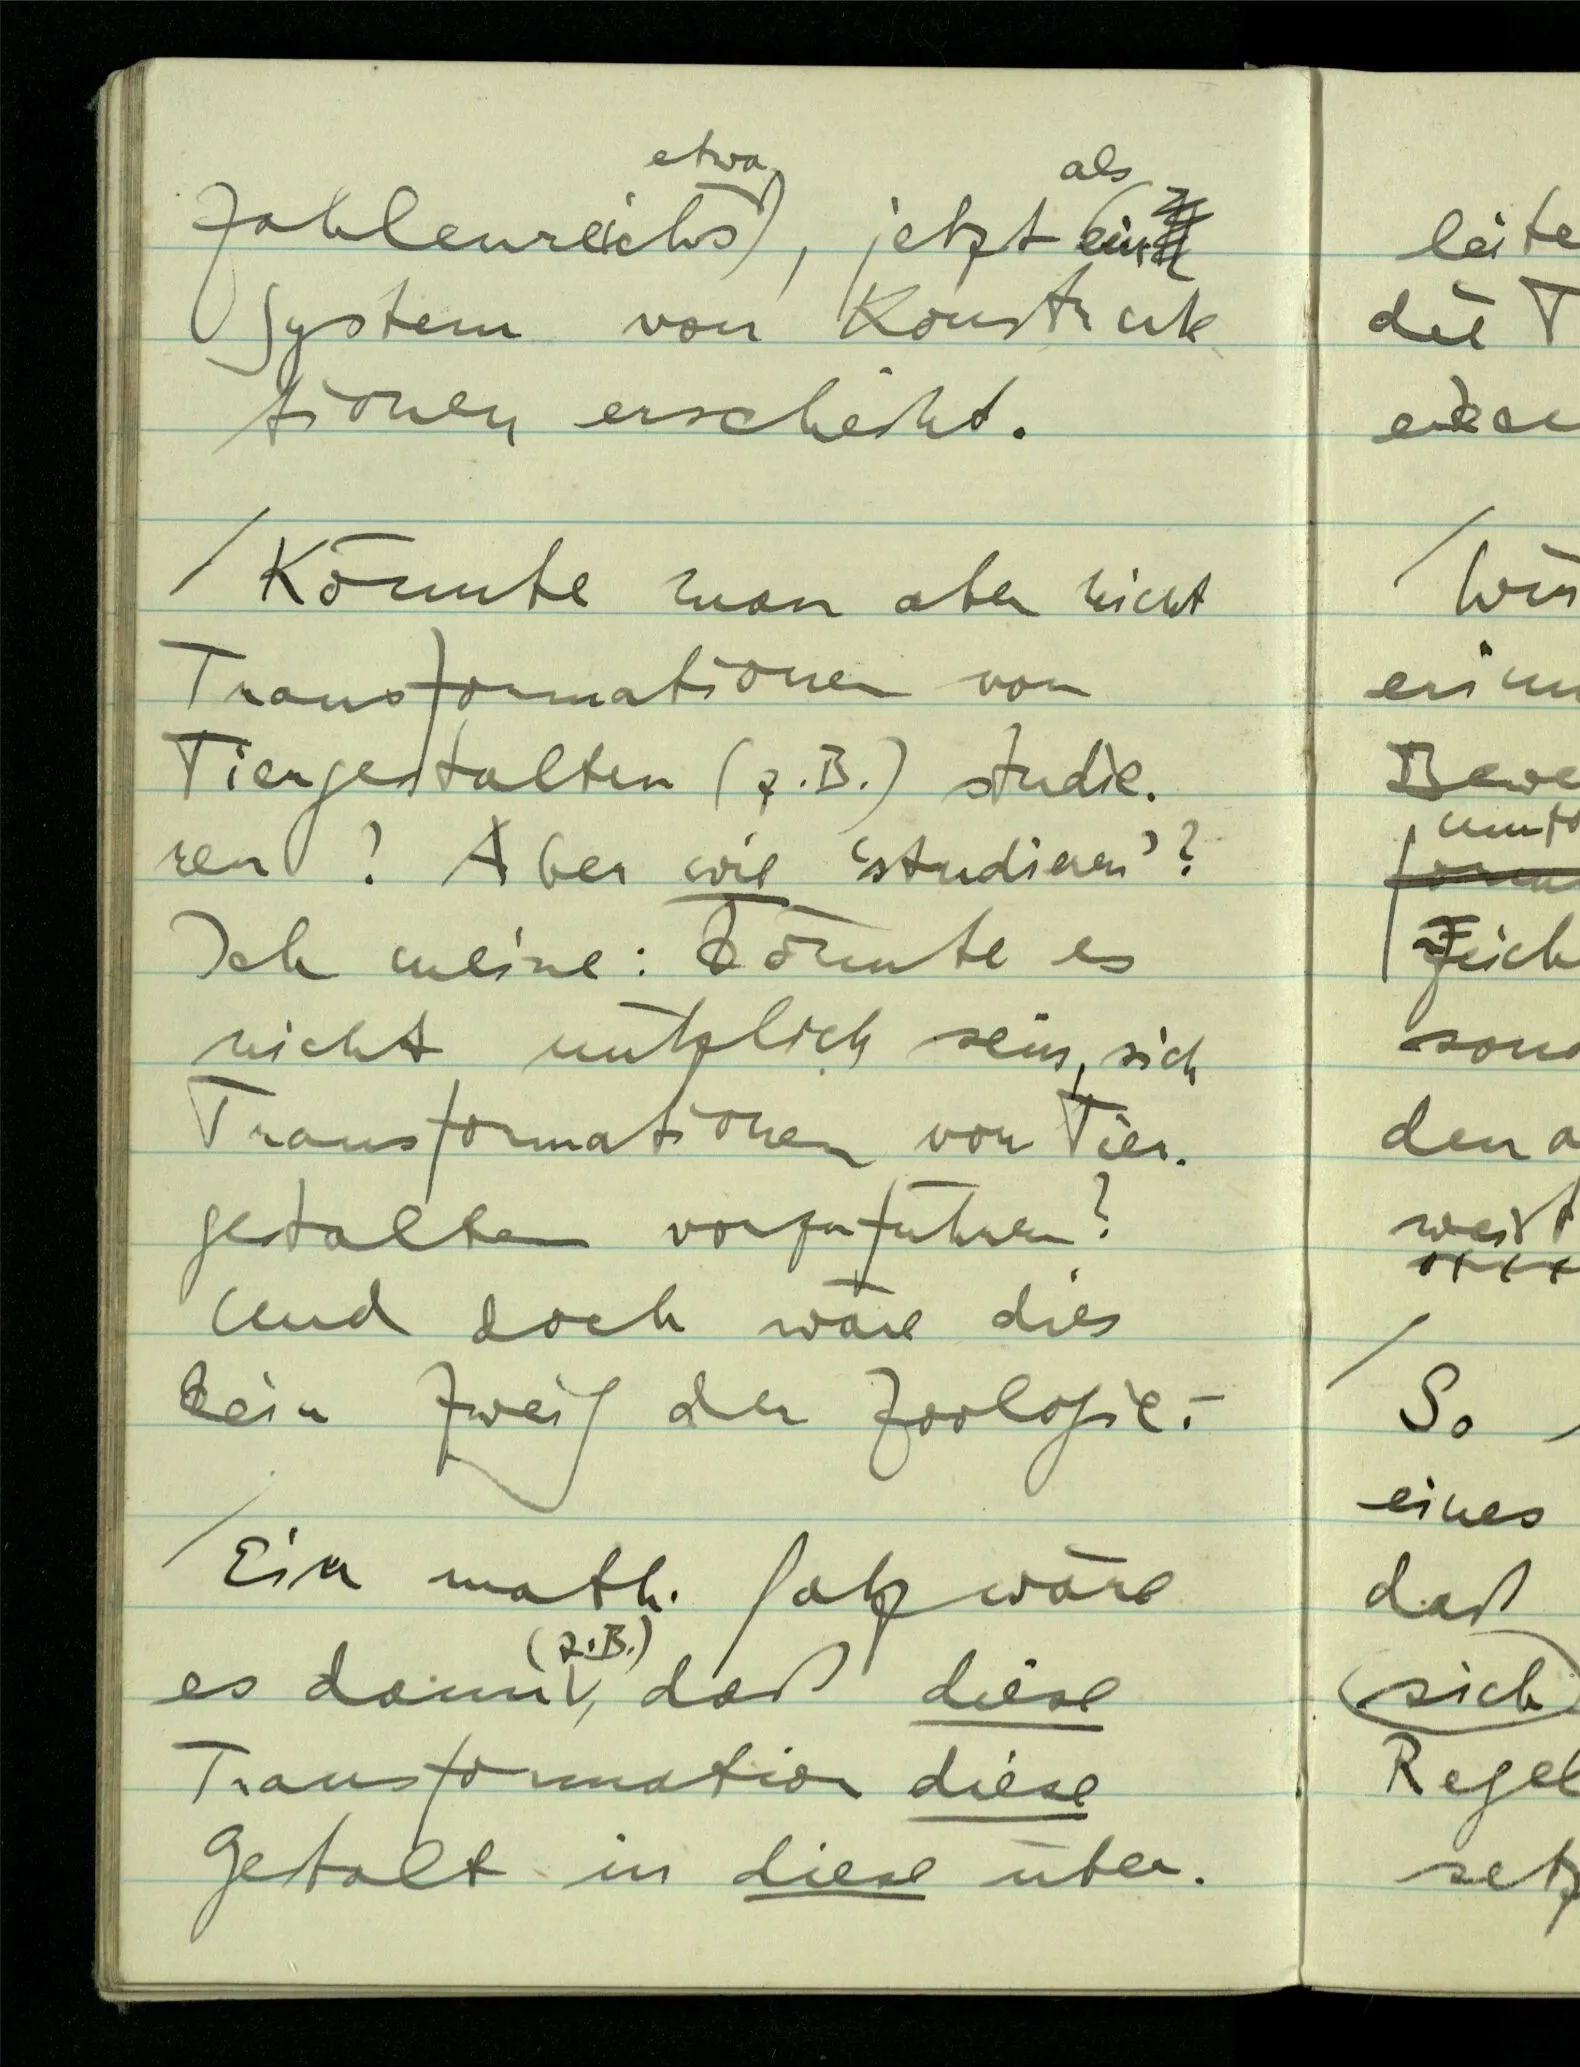 etwa als
Zahlenreichs), jetzt ein
System von Konstruk
tionen erscheint.
/ Könnte man aber nicht
Transformationen von
Tiergestalten (z.B.) studie-
ren? Aber wie 'studieren'?
Ich meine: Könnte es
nicht nützlich sein, sich
Transformationen von Tier-
gestalten vorzuführen?
Und doch wäre dies
kein Zweig der Zoologie. –
/ Ein math. Satz wäre
(z.B.)
es dann, daß diese
Transformation diese
Gestalt in diese über.
leite
die T
/ Wir
erinn
Bewe
umfo
Zeich
sond
den a
weist
/
So
eines
daß
sich
Regel
setz